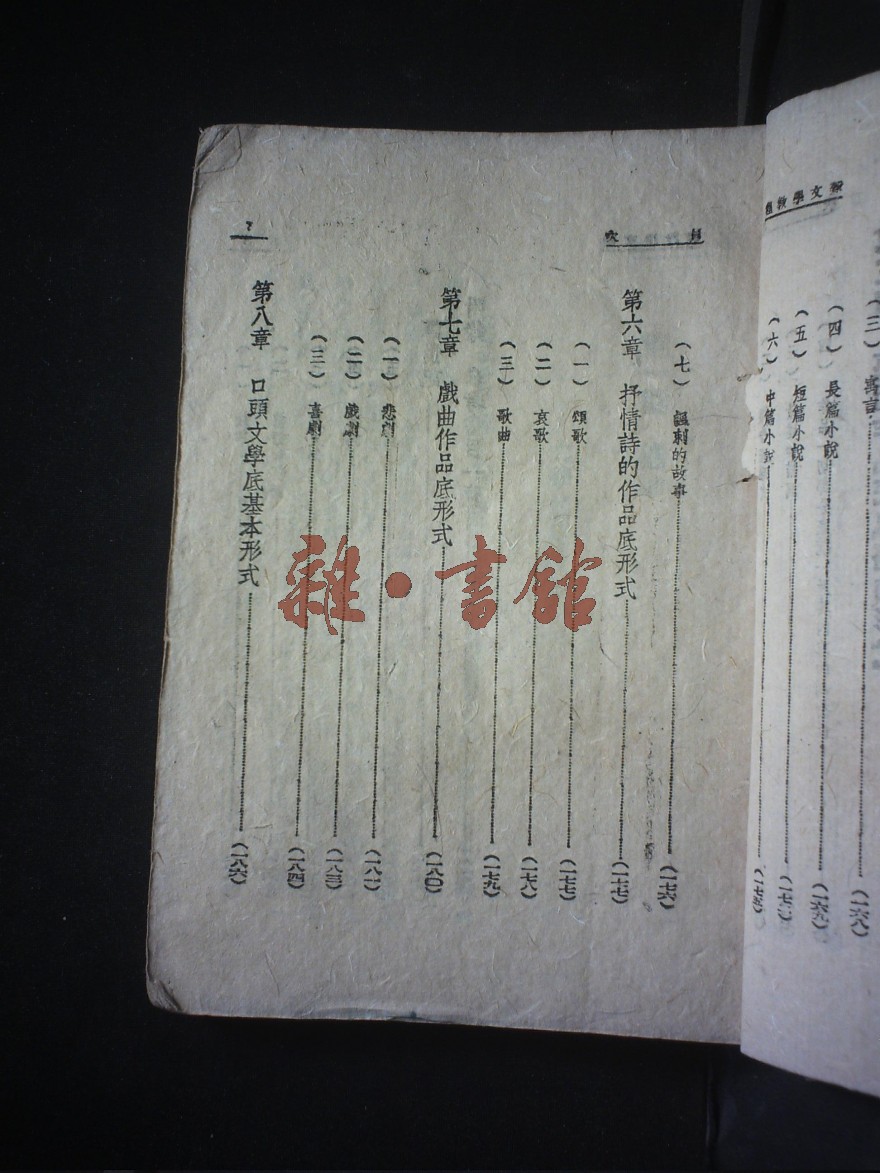 新文學教程
（三）寓言 （一六八）
（四）長篇小說 （一六九）
（五）短篇小說
（六）中篇小說 （一七五）
目次
（七）諷刺的故事 （一七六）
第六章 抒情詩的作品底形式 （一七七）
（一）頌歌 （一七七）
（二）哀歌 （一七八）
（三）歌曲 （一七九）
第七章 戲曲作品底形式 （一八〇）
（一）悲劇 （一八一）
（二）戲劇 （一八三）
（三）喜劇 （一八四）
第八章 口頭文學底基本形式 （一八六）
7
雜·書館